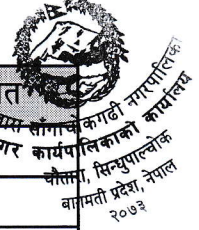 त
चौतारा साँगाचोकगढी नगरपालिका
नगर कार्यपालिकाको कार्यालय
चौतारा, सिन्धुपाल्चोक
बागमती प्रदेश, नेपाल
२०७३